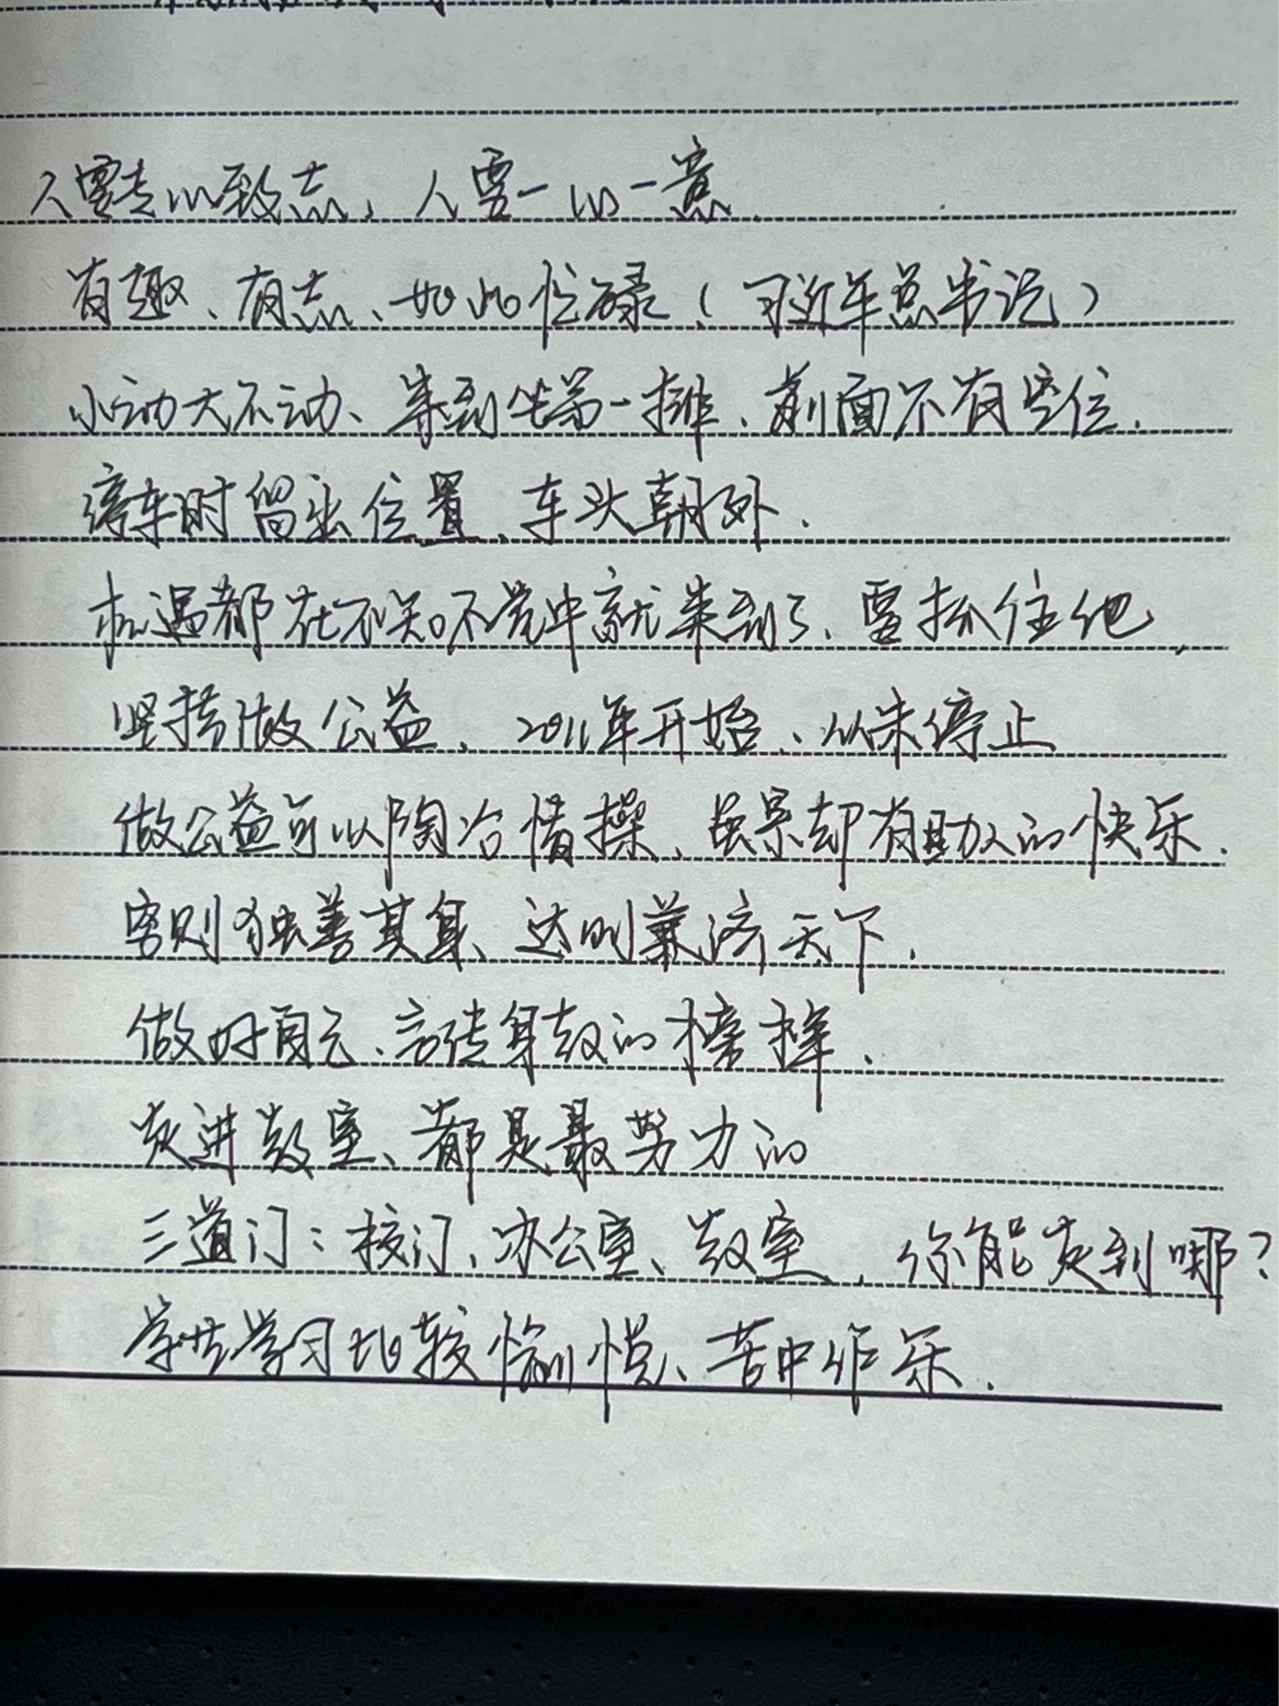 人要专心致志、人要一心一意.
有趣、有志、如此忙碌（习近平总书记）
小动大不动、等到坐第一排、前面不有空位.
停车时留出位置、车头朝外.
机遇都在不知不觉中就来到了、要抓住他,
坚持做公益、2011年开始、从未停止
做公益可以陶冶情操、虽累却有助人的快乐.
穷则独善其身、达则兼济天下.
做好自己、言传身教的榜样.
走进教室、都是最努力的
三道门：校门、办公室、教室，你能走到哪？
学生学习比较愉悦、苦中作乐.